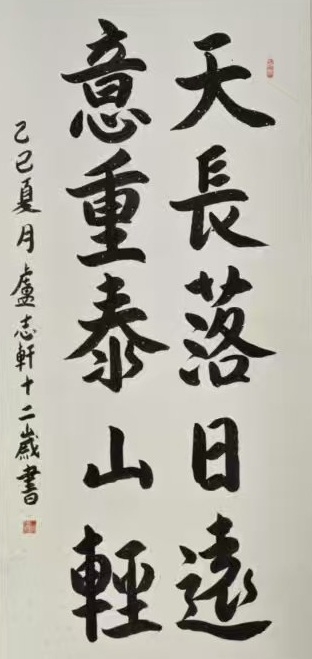 天長落日遠
意重泰山輕
乙巳夏月盧志軒十二歲書